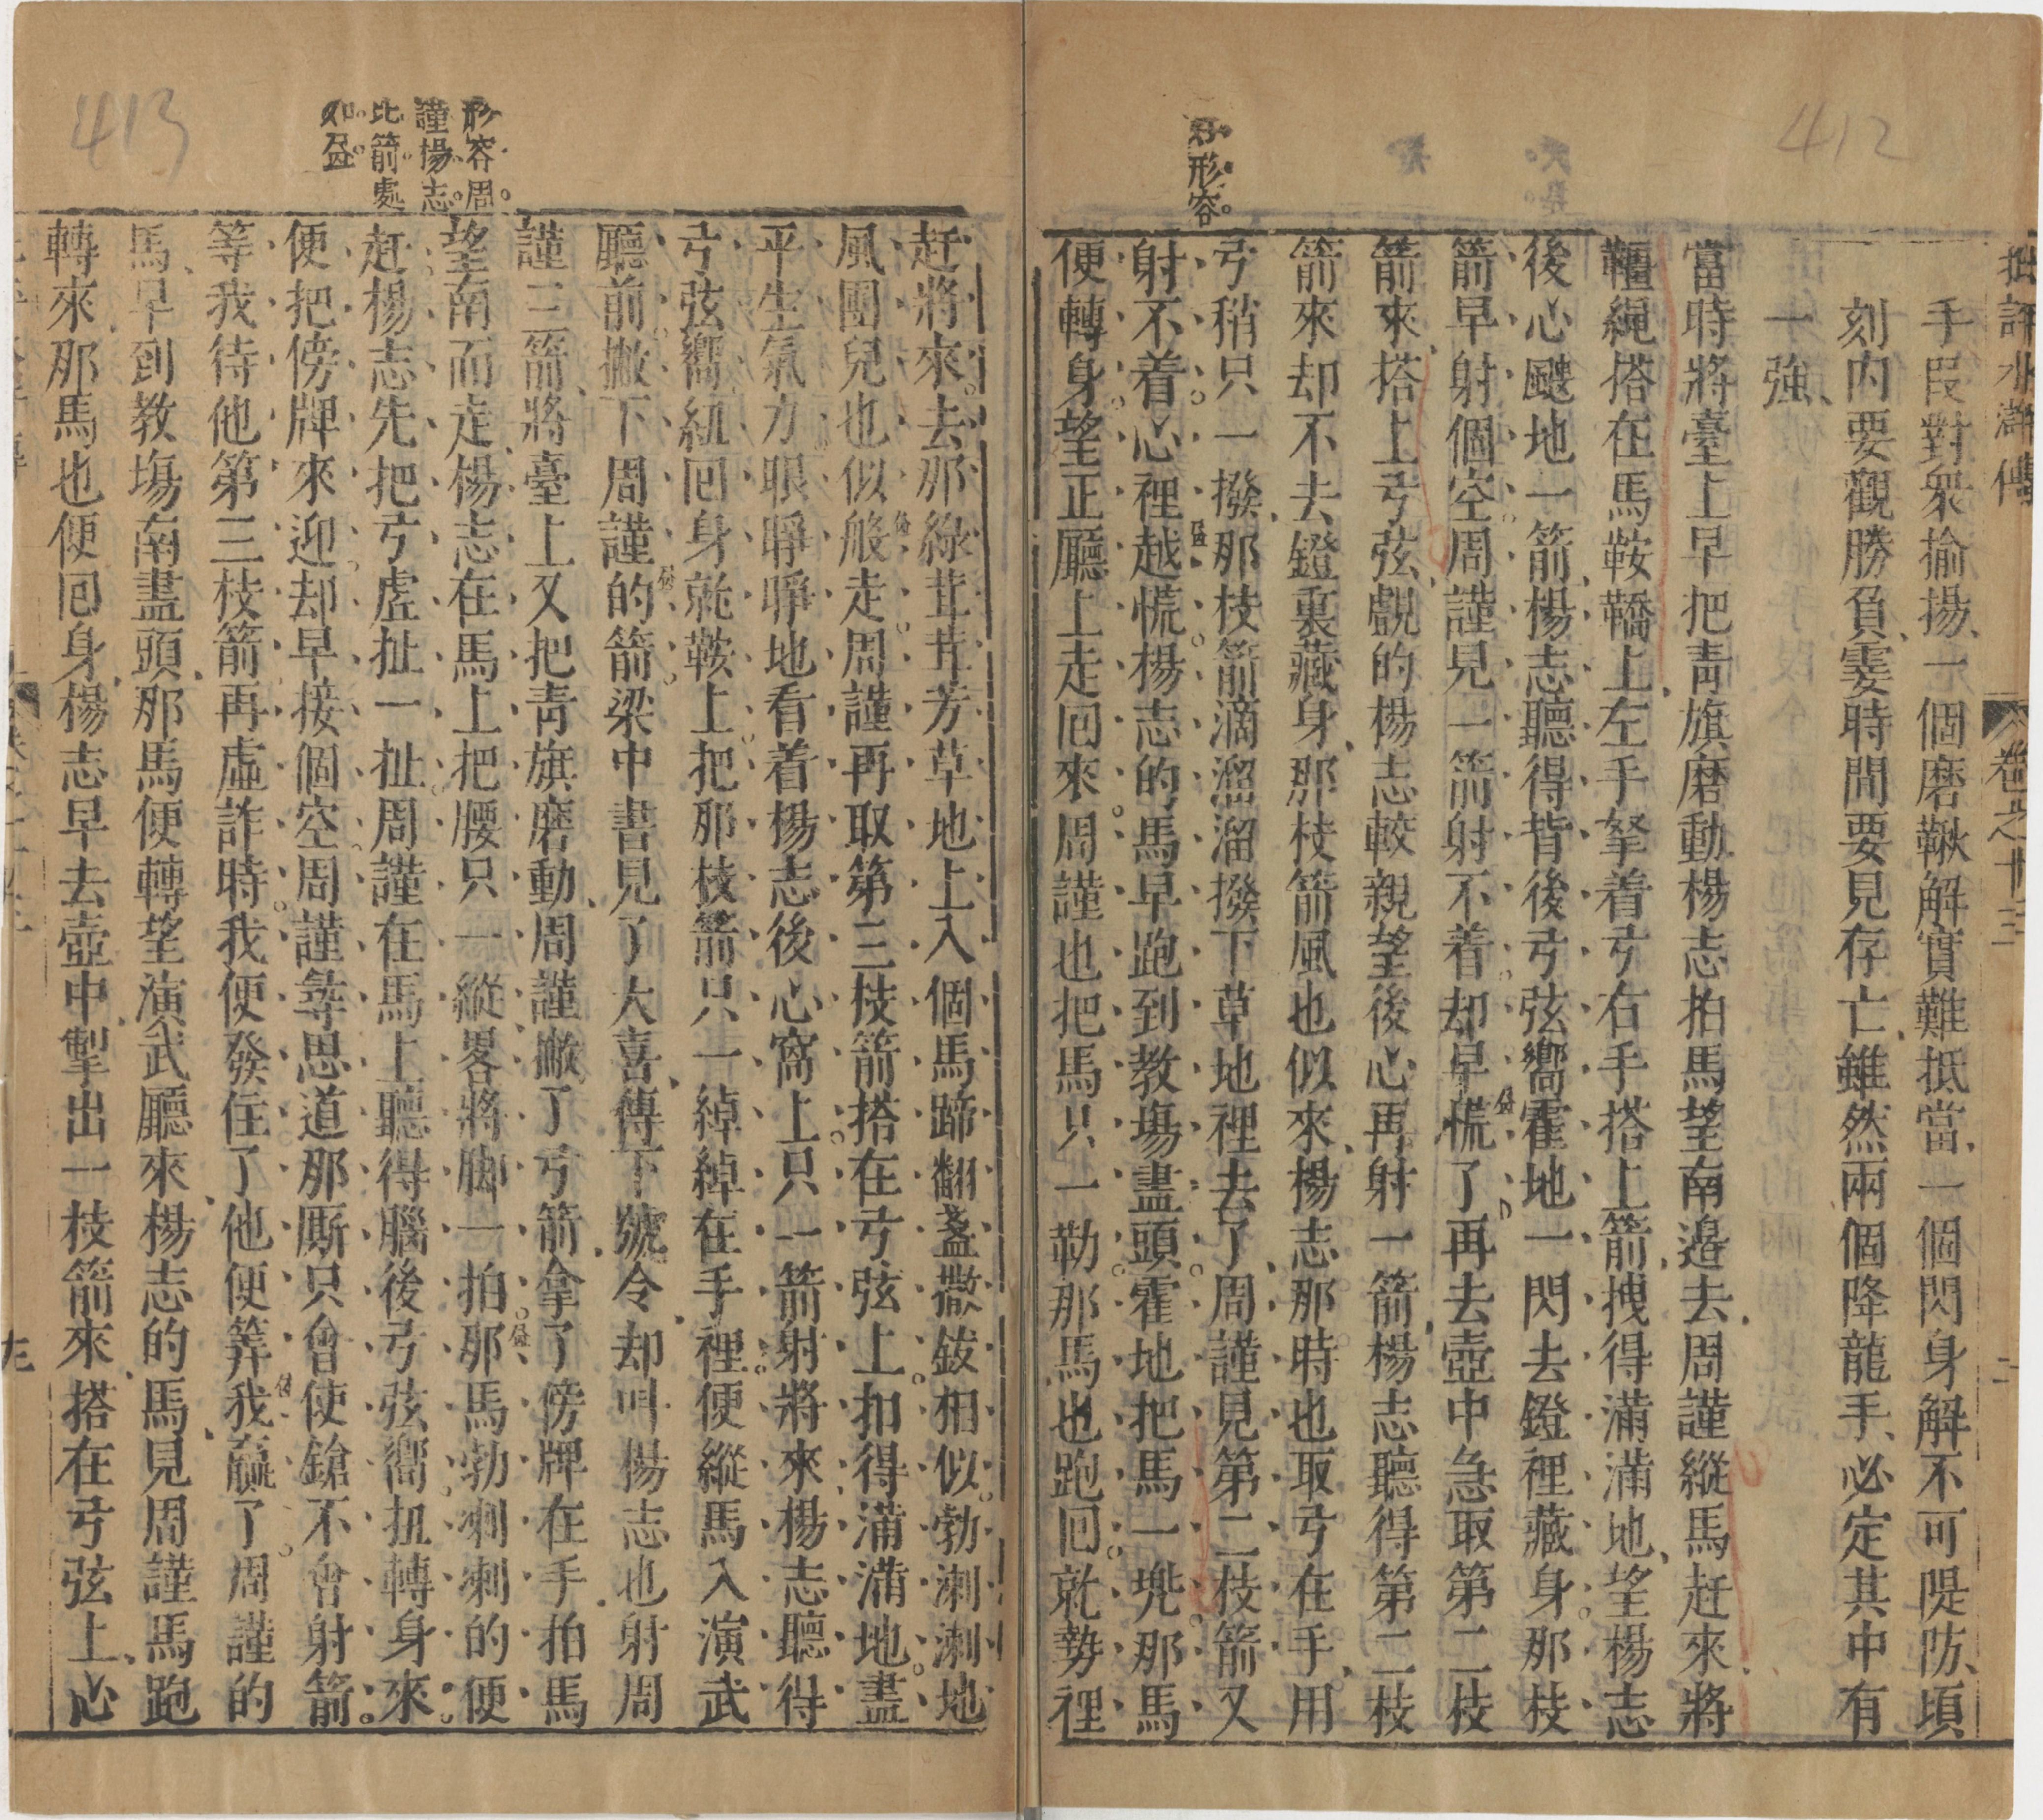 412
批評水滸傳
卷之十三
二
手叚對衆揄揚一個磨鞦解實難抵當一個閃身解不可隄防頃
刻内要觀勝負霎時間要見存亡雖然兩個降龍手必定其中有
一強
當時將臺上早把青旗磨動楊志拍馬望南邉去周謹縱馬赶來將
韁繩搭在馬鞍鞽上左手拏着弓右手搭上箭拽得滿滿地望楊志
後心颼地一箭楊志聽得背後弓弦嚮霍地一閃去鐙裡藏身那枝
箭早射個空周謹見一箭射不着却早慌了再去壺中急取第二枝
箭來搭上弓弦覷的楊志較親望後心再射一箭楊志聽得第二枝
箭來却不去鐙裏藏身那枝箭風也似來楊志那時也取弓在手用
弓稍只一撥那枝箭滴溜溜撥下草地裡去了周謹見第二枝箭又
好形容
射不着心裡越慌楊志的馬早跑到教場盡頭霍地把馬一兠那馬
便轉身望正廳上走囘來周謹也把馬只一勒那馬也跑囘就勢裡
413
赶將來去那綠茸茸芳草地上八個馬蹄翻盞撒鈸相似勃剌剌地
風團兒也似般走周謹再取第三枝箭搭在弓弦上扣得滿滿地盡
平生氣力眼睜睜地看着楊志後心窩上只一箭射將來楊志聽得
弓弦嚮紐囘身就鞍上把那枝箭只一綽綽在手裡便縱馬入演武
廳前撇下周謹的箭梁中書見了大喜傳下號令却叫楊志也射周
謹三箭將臺上又把青旗磨動周謹撇了弓箭拿了傍牌在手拍馬
形容周
謹楊志
比箭處
如畵
望南而走楊志在馬上把腰只一縱畧將脚一拍那馬勃剌剌的便
赶楊志先把弓虗扯一扯周謹在馬上聽得腦後弓弦嚮扭轉身來
便把傍牌來迎却早接個空周謹尋思道那厮只會使鎗不會射箭
等我待他第三枝箭再虛詐時我便發住了他便筭我贏了周謹的
馬早到教場南盡頭那馬便轉望演武廳來楊志的馬見周謹馬跑
轉來那馬也便囘身楊志早去壺中掣出一枝箭來搭在弓弦上心